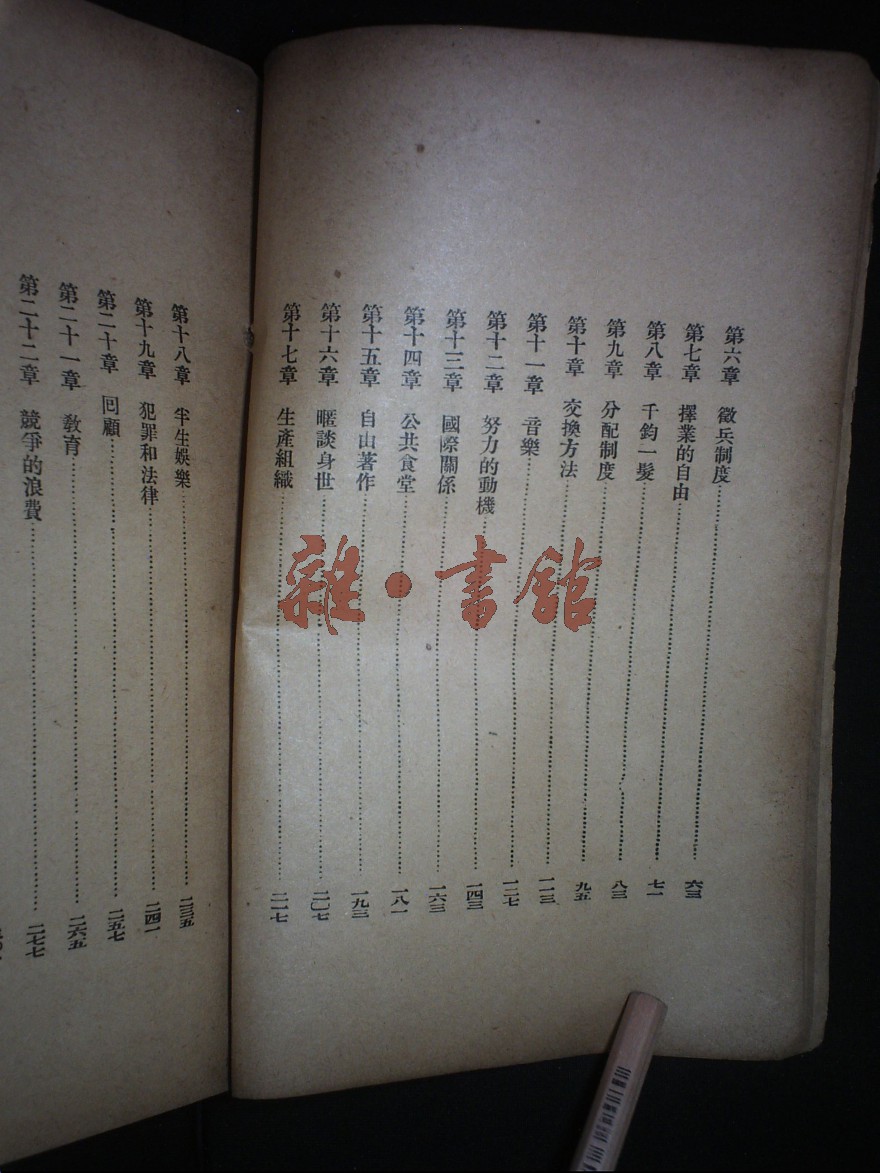 第六章 徵兵制度……六三
第七章 擇業的自由……七一
第八章 千鈞一髮……八三
第九章 分配制度……九五
第十章 交換方法……一一三
第十一章 音樂……一二七
第十二章 努力的動機……一四三
第十三章 國際關係……一六三
第十四章 公共食堂……一八一
第十五章 自由著作……一九三
第十六章 暱談身世……二〇七
第十七章 生產組織……二一七
第十八章 半生娛樂……二三五
第十九章 犯罪和法律……二四一
第二十章 回顧……二五七
第二十一章 教育……二六五
第二十二章 競爭的浪費……二七七
雜·書館